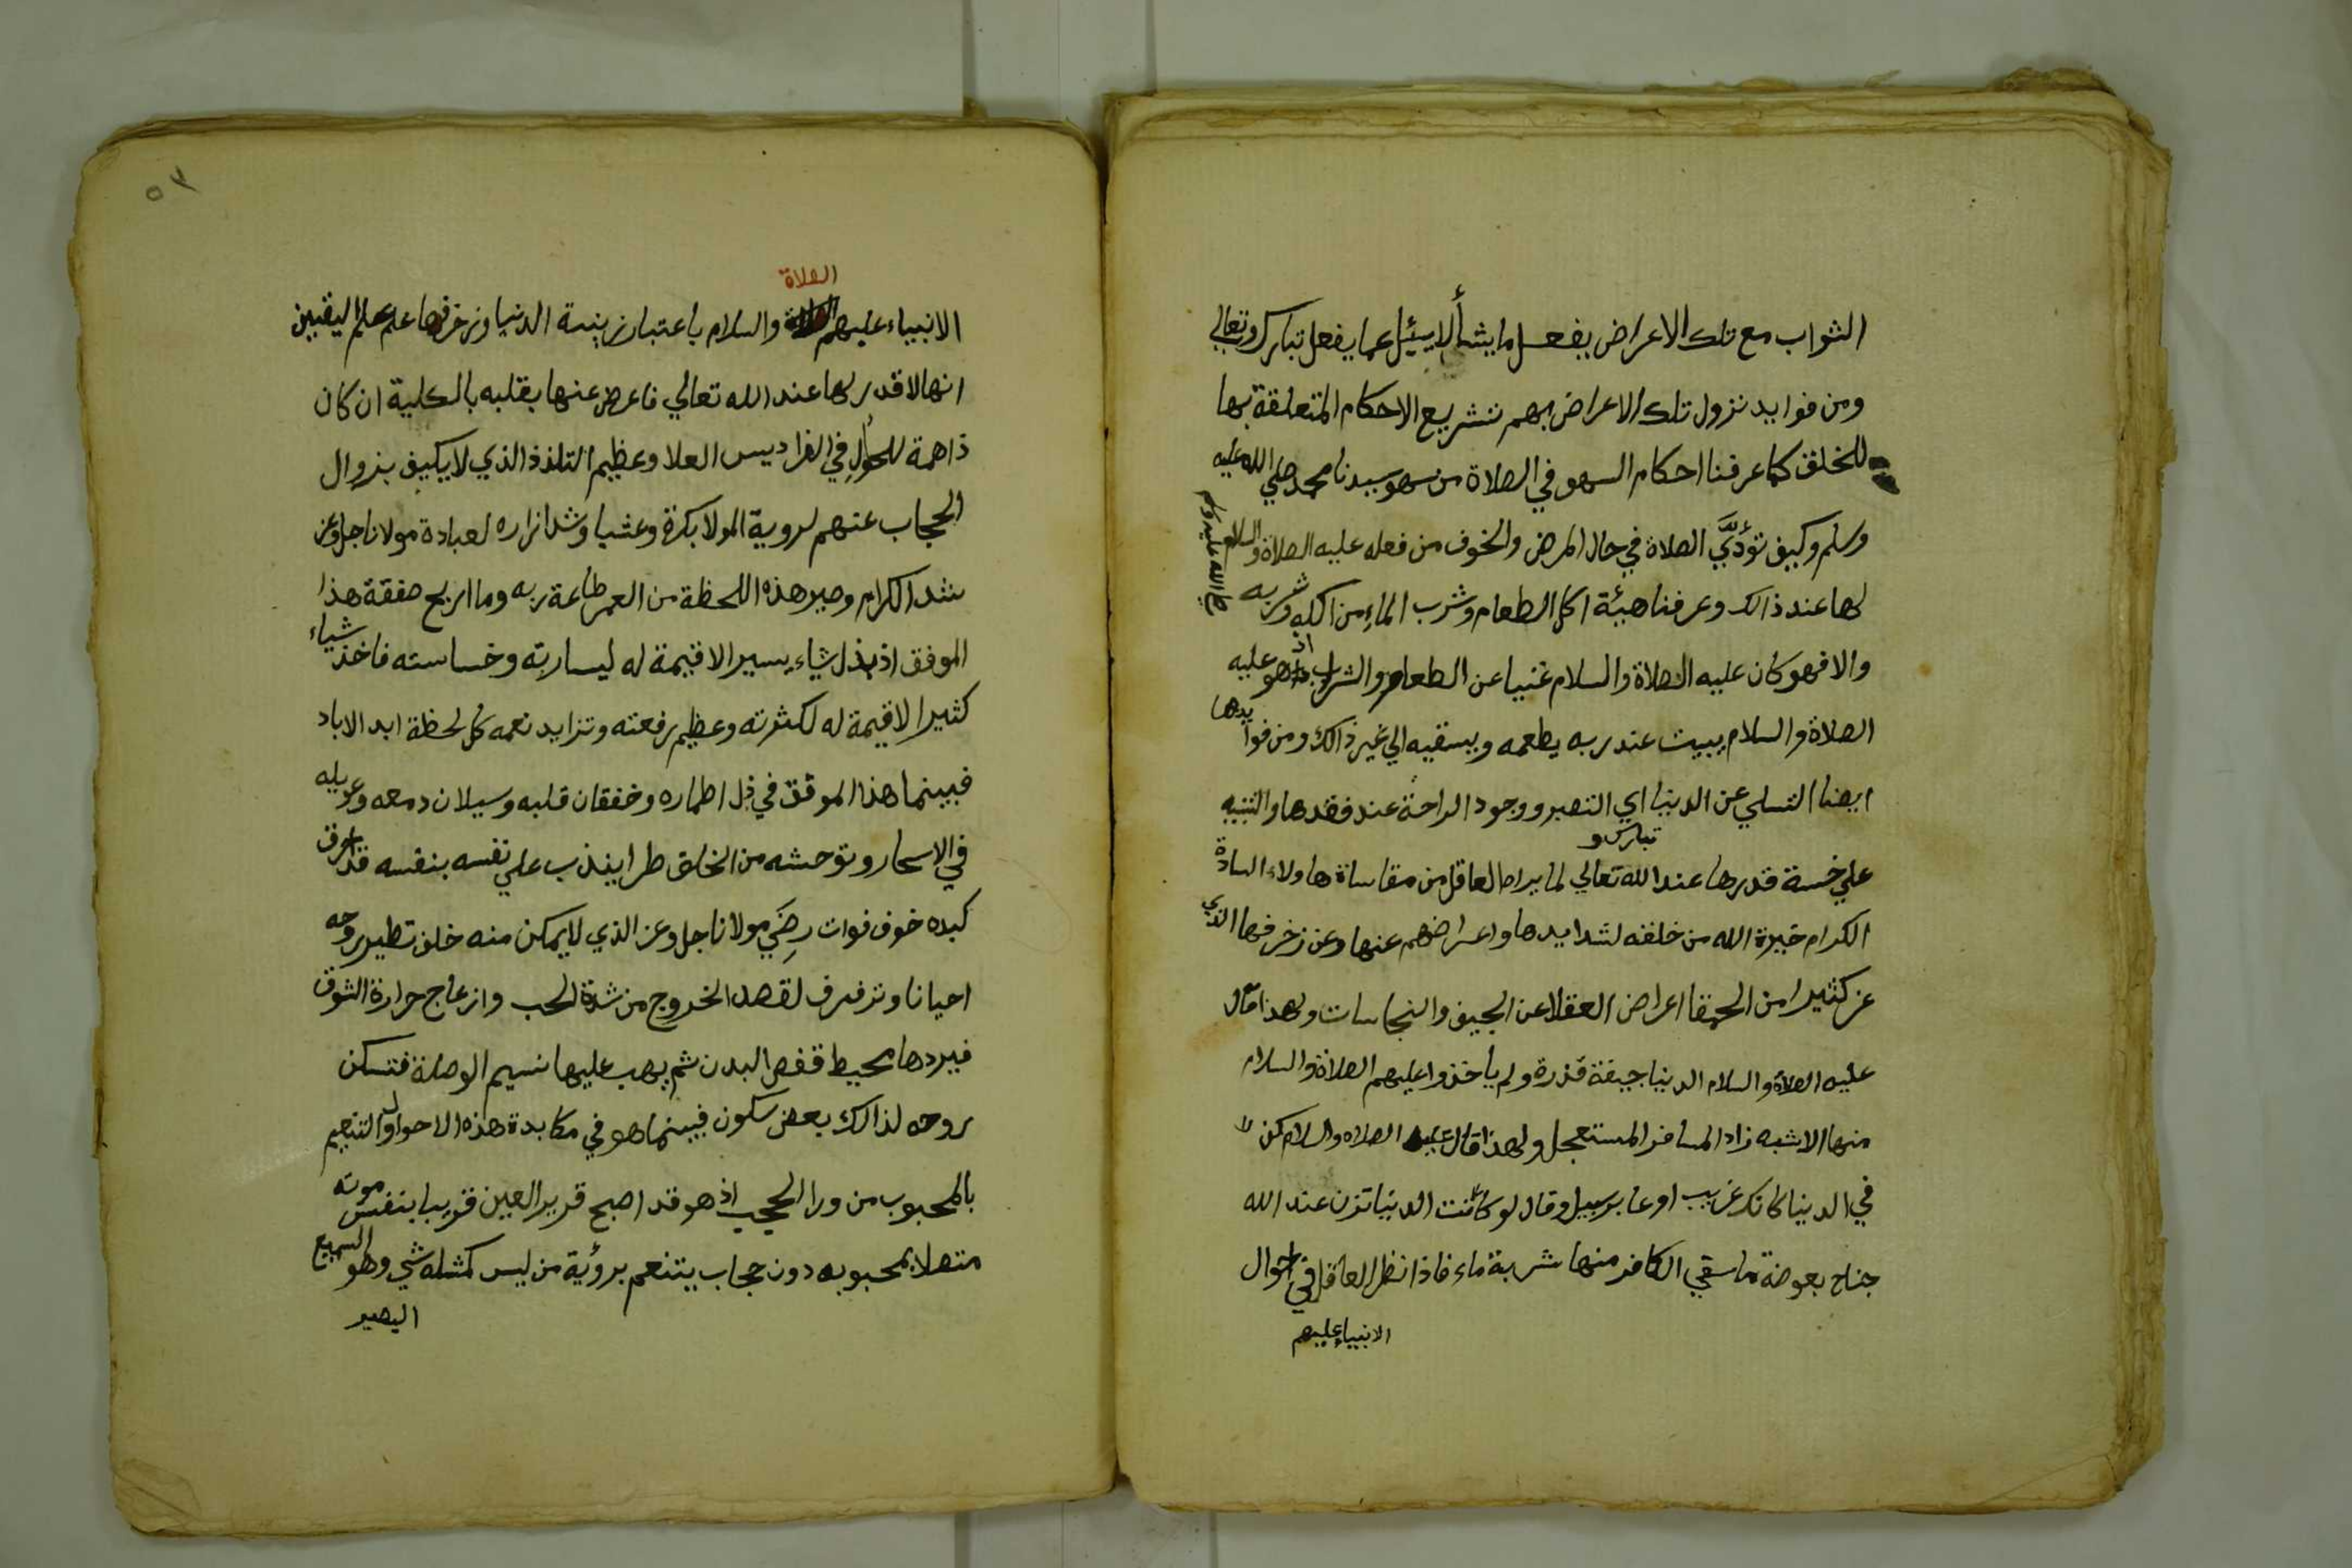 الثواب مع تلك الاعراض يفعل ما يشأ لا يسئل عما يفعل تبارك وتعالي
ومن فوايد نزول تلك الاعراض بهم تشريع الاحكام المتعلقة بها
للخلق كما عرفنا احكام السهو في الصلاة من سهو سيدنا محمد صلي الله عليه
وسلم وكيف تؤدَّي الصلاة في حال المرض والخوف من فعله عليه الصلاة والسلام
لها عند ذالك وعرفنا هيئة اكل الطعام وشرب الماء من اكله وشربه
صلي الله عليه وسلم
والا فهو كان عليه الصلاة والسلام غنيا عن الطعام والشراب اذ هو عليه
الصلاة والسلام يبيت عند ربه يطعمه ويسقيه الي غير ذالك ومن فوايدها
ايضا التسلي عن الدنيا اي التصبر ووجود الراحة عند فقدها والتنبيه
علي خسة قدرها عند الله تبارك وتعالي لما يراه العاقل من مقاساة هاولاء السادة
الكرام خيرة الله من خلقه لشدايدها واعراضهم عنها وعن زخرفها الذي
غر كثيرا من الحمقا اعراض العقلا عن الجيف والنجاسات ولهذا قال
عليه الصلاة والسلام الدنيا جيفة قذرة ولم يأخذوا عليهم الصلاة والسلام
منها الا شبه زاد المسافر المستعجل ولهذا قال عليه الصلاه والسلام كن
في الدنيا كانك غريب او عابر سبيل وقال لو كانت الدنيا تزن عند الله
جناح بعوضة ما سقي الكافر منها شربة ماء فاذا نظر العاقل في احوال
الانبياء عليهم
٥٣
الانبياء عليهم الصلاة والسلام باعتبار زينة الدنيا وزخرفها علم علم اليقين
انها لا قدر لها عند الله تعالي فاعرض عنها بقلبه بالكلية ان كان
ذا همة للحول في الفراديس العلا وعظيم التلذذ الذي لا يكيف بزوال
الحجاب عنهم لروية المولا بكرة وعشيا وشد ازاره لعبادة مولانا جل وعز
شد الكرام وصير هذه اللحظة من العمر طاعة ربه وما اربح صفقة هذا
الموفق اذ بذل شياء يسيرا لا قيمة له ليسارته وخساسته فاخذ شياء
كثيرا لا قيمة له لكثرته وعظيم رفعته وتزايد نعمه كل لحظة ابد الاباد
فبينما هذا الموفق في ذل اطماره وخفقان قلبه وسيلان دمعه وعويله
في الاسحار وتوحشه من الخلق طرا يندب علي نفسه بنفسه قد احرق
كبده خوف فوات رضي مولانا جل وعز الذي لا يمكن منه خلف تطير روحه
احيانا وترفرف لقصد الخروج من شدة الحب وازعاج حرارة الشوق
فيردها محيط قفص البدن ثم يهب عليها نسيم الوصلة فتسكن
روحه لذالك بعض سكون فبينما هو في مكابدة هذه الاحوال والتنعيم
بالمحبوب من ورا الحجب اذ هو قد اصبح قرير العين قريبا بنفس موته
متصلا بمحبوبه دون حجاب يتنعم برؤية من ليس كمثله شي وهو السميع
البصير